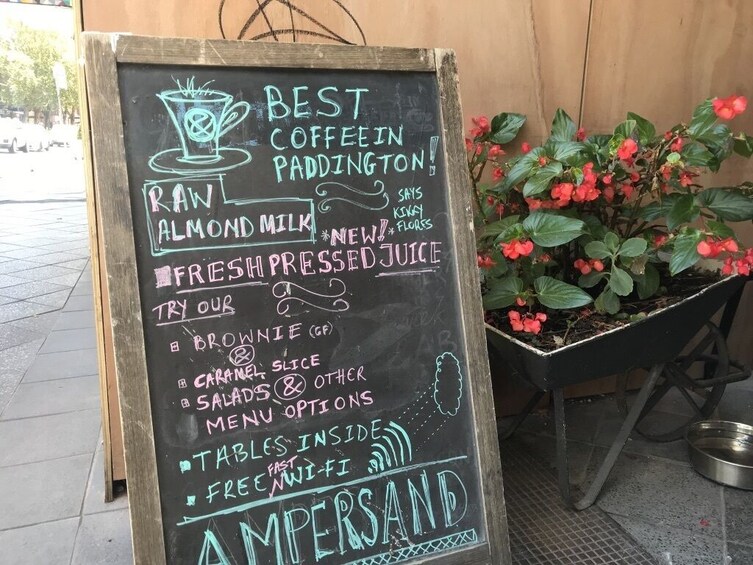 BEST
COFFEE IN
PADDINGTON!
SAYS
KIKKY
FLORES
RAW
ALMOND MILK
*NEW!*
FRESH PRESSED JUICE
TRY OUR
BROWNIE (GF)
&
CARAMEL SLICE
SALADS & OTHER
MENU OPTIONS
TABLES INSIDE
FREE FAST WI-FI
AMPERSAND